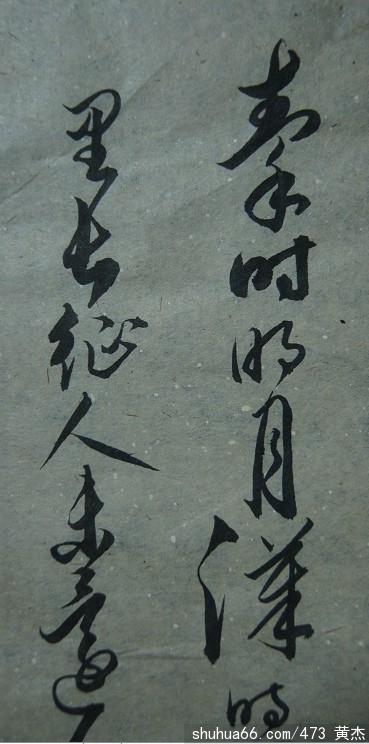 秦时明月漢時
里长征人未還
shuhua66.com/473 黄杰